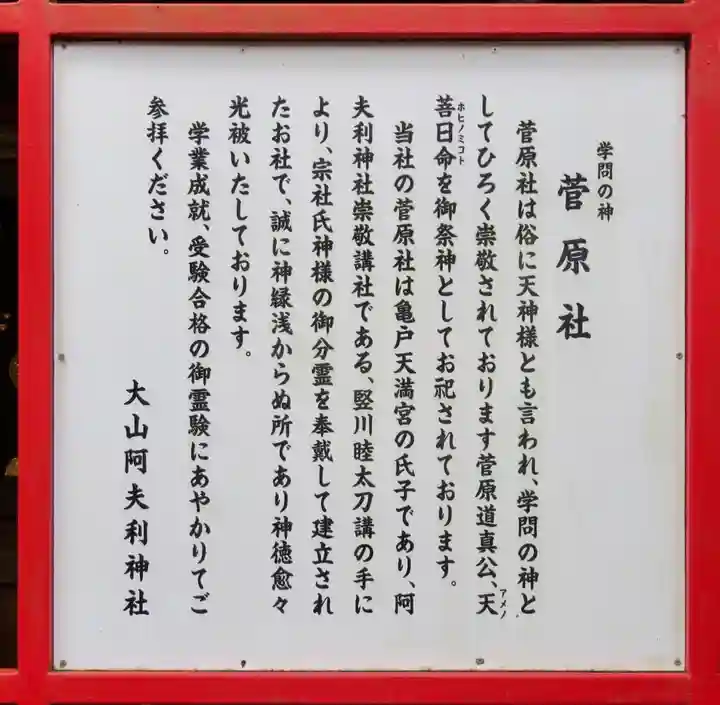 学問の神
菅原社
菅原社は俗に天神様とも言われ、学問の神と
してひろく崇敬されております菅原道真公、天アメノ
菩日命ホヒノミコトを御祭神としてお祀されております。
当社の菅原社は亀戸天満宮の氏子であり、阿
夫利神社崇敬講社である、竪川睦太刀講の手に
より、宗社氏神様の御分霊を奉戴して建立され
たお社で、誠に神縁浅からぬ所であり神徳愈々
光被いたしております。
学業成就、受験合格の御霊験にあやかりてご
参拝ください。
大山阿夫利神社